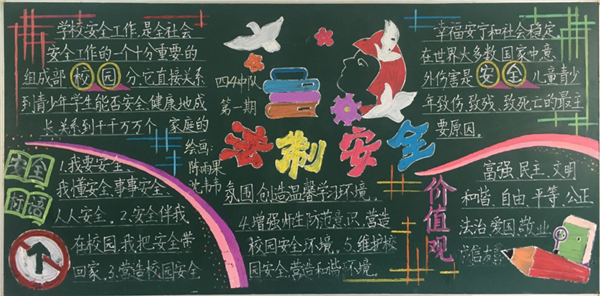 学校安全工作,是全社会
安全工作的一个十分重要的
组成部 校园 分,它直接关系
到青少年学生能否安全、健康地成
长,关系到千千万万个家庭的
四4中队
第一期
绘画:
陈雨果
法制安全
幸福安宁和社会稳定。
在世界大多数国家中,意
外伤害是 安全 儿童青少
年致伤、致残、致死亡的最主
要原因。
安全
标语
1.我要安全、
我懂安全、事事安全、
人人安全。2.安全伴我
在校园,我把安全带
回家。3.营造校园安全
氛围,创造温馨学习环境。
4.增强师生防范意识,营造
校园安全环境。5.维护校
园安全,营造和谐环境。
价值观
富强、民主、文明
和谐、自由、平等、公正
法治、爱国、敬业、
诚信、友善